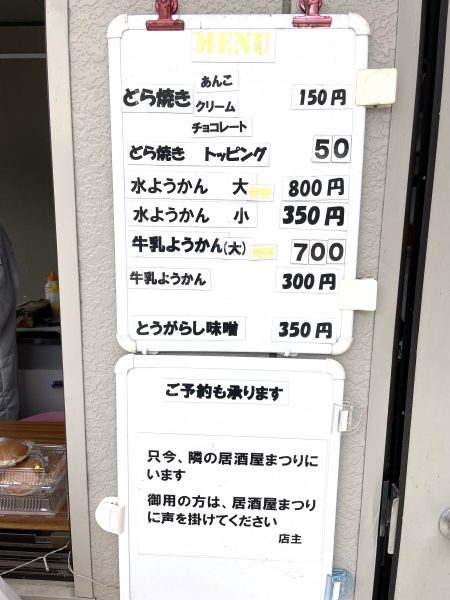 MENU
あんこ
どら焼き クリーム 150円
チョコレート
どら焼き トッピング 50
水ようかん 大 800円
水ようかん 小 350円
牛乳ようかん(大) 700
牛乳ようかん 300円
とうがらし味噌 350円
ご予約も承ります
只今、隣の居酒屋まつりに
います
御用の方は、居酒屋まつり
に声を掛けてください
店主